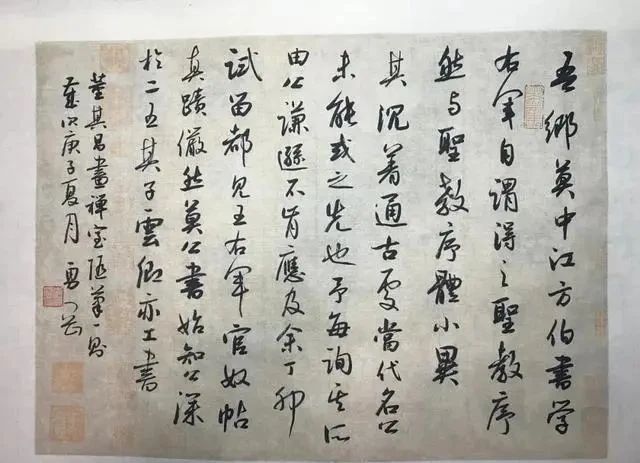 吾鄉莫中江方伯書学
右军自謂得之聖教序
然与聖教序體小異
其沉着通古處當代名公
未能或之先也予每詢其所
由公謙遜不肯應及余丁卯
試留都見王右军官奴帖
真蹟儼然莫公書始知公深
於二王其子雲卿亦工書
董其昌畫禪室随筆一則
歲次庚子夏月